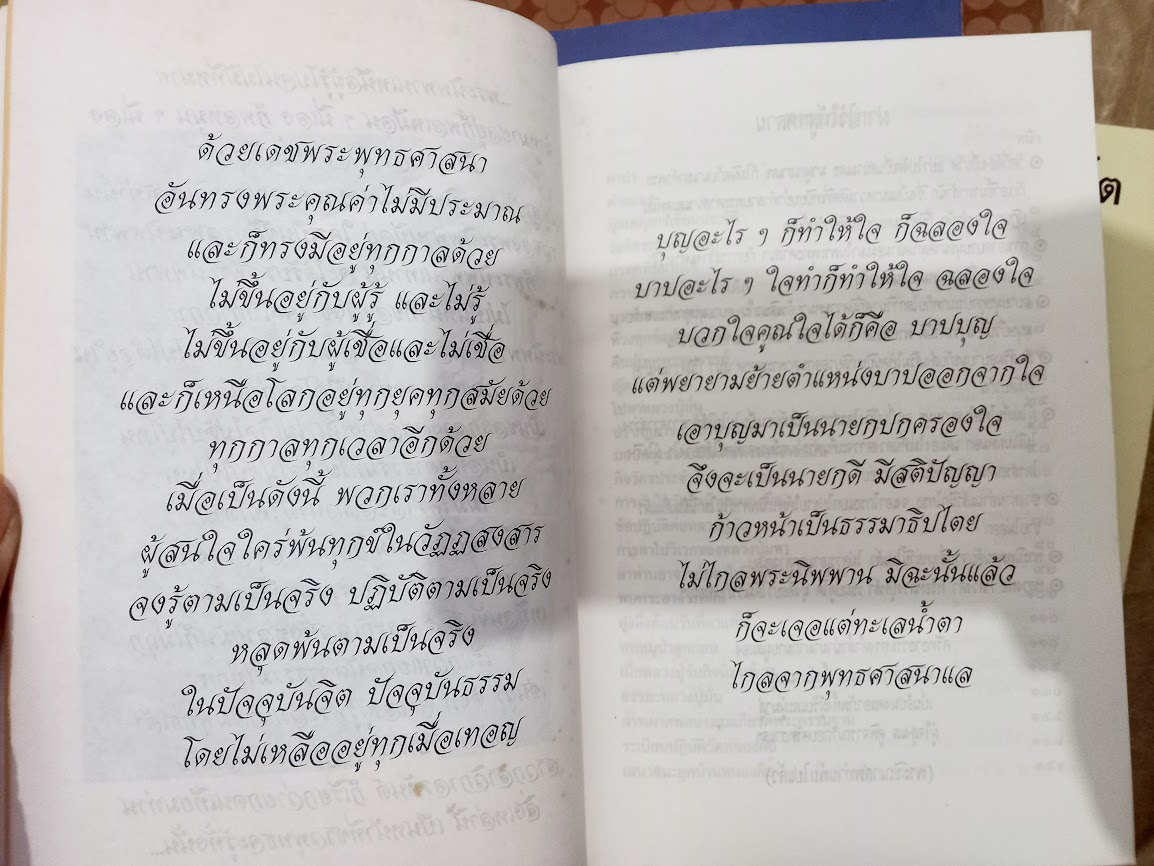 ด้วยเดชพระพุทธศาสนา
อันทรงพระคุณค่าไม่มีประมาณ
และก็ทรงมีอยู่ทุกกาลด้วย
ไม่ขึ้นอยู่กับผู้รู้ และไม่รู้
ไม่ขึ้นอยู่กับผู้เชื่อและไม่เชื่อ
และก็เหนือโลกอยู่ทุกยุคทุกสมัยด้วย
ทุกกาลทุกเวลาอีกด้วย
เมื่อเป็นดังนี้ พวกเราทั้งหลาย
ผู้สนใจใคร่พ้นทุกข์ในวัฏฏสงสาร
จงรู้ตามเป็นจริง ปฏิบัติตามเป็นจริง
หลุดพ้นตามเป็นจริง
ในปัจจุบันจิต ปัจจุบันธรรม
โดยไม่เหลืออยู่ทุกเมื่อเทอญ
บุญอะไร ๆ ก็ทำให้ใจ ก็ฉลองใจ
บาปอะไร ๆ ใจทำก็ทำให้ใจ ฉลองใจ
บวกใจคูณใจได้ก็คือ บาปบุญ
แต่พยายามย้ายตำแหน่งบาปออกจากใจ
เอาบุญมาเป็นนายกปกครองใจ
จึงจะเป็นนายกดี มีสติปัญญา
ก้าวหน้าเป็นธรรมาธิปไตย
ไม่ไกลพระนิพพาน มิฉะนั้นแล้ว
ก็จะเจอแต่ทะเลน้ำตา
ไกลจากพุทธศาสนาแล